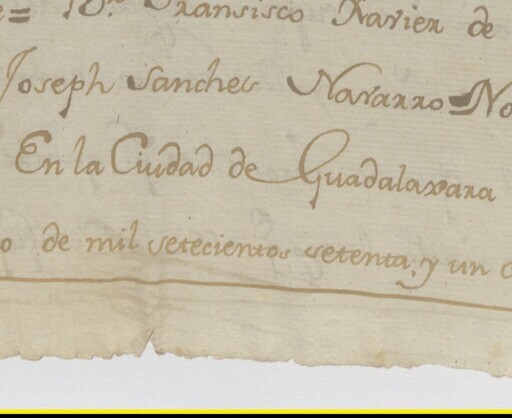 e= D.r Fransisco Xavier de
Joseph Sanches Navarro No
En la Ciudad de Guadalaxara
o de mil setecientos setenta, y un